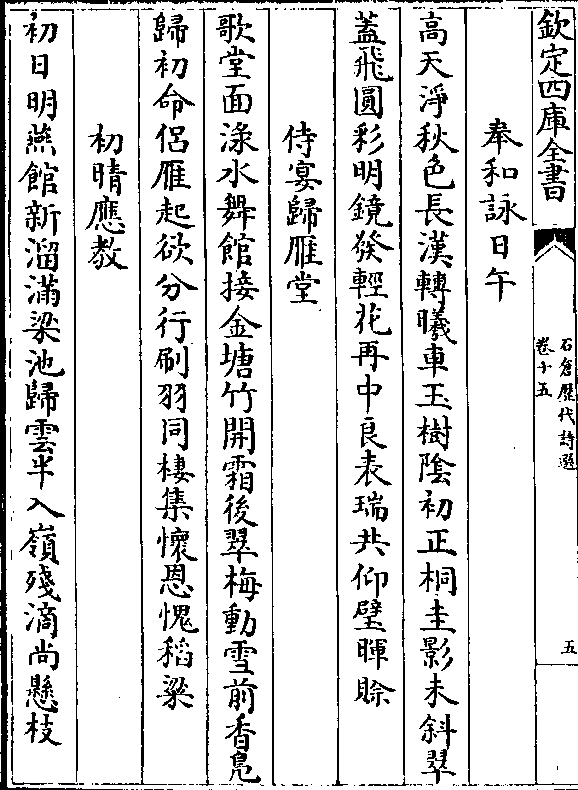 欽定四庫全書
石倉歷代詩選
卷十五
五
奉和詠日午
高天淨秋色長漢轉曦車玉樹陰初正桐圭影未斜翠
蓋飛圓彩明鏡發輕花再中良表瑞共仰璧暉賖
侍宴歸雁堂
歌堂面淥水舞館接金塘竹開霜後翠梅動雪前香鳬
歸初命侶雁起欲分行刷羽同棲集懷恩愧稻粱
初晴應教
初日明燕館新溜滿梁池歸雲半入嶺殘滴尚懸枝